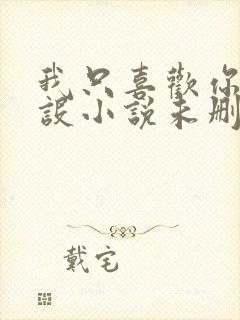 我只喜歡你
設小說未刪
戴宅